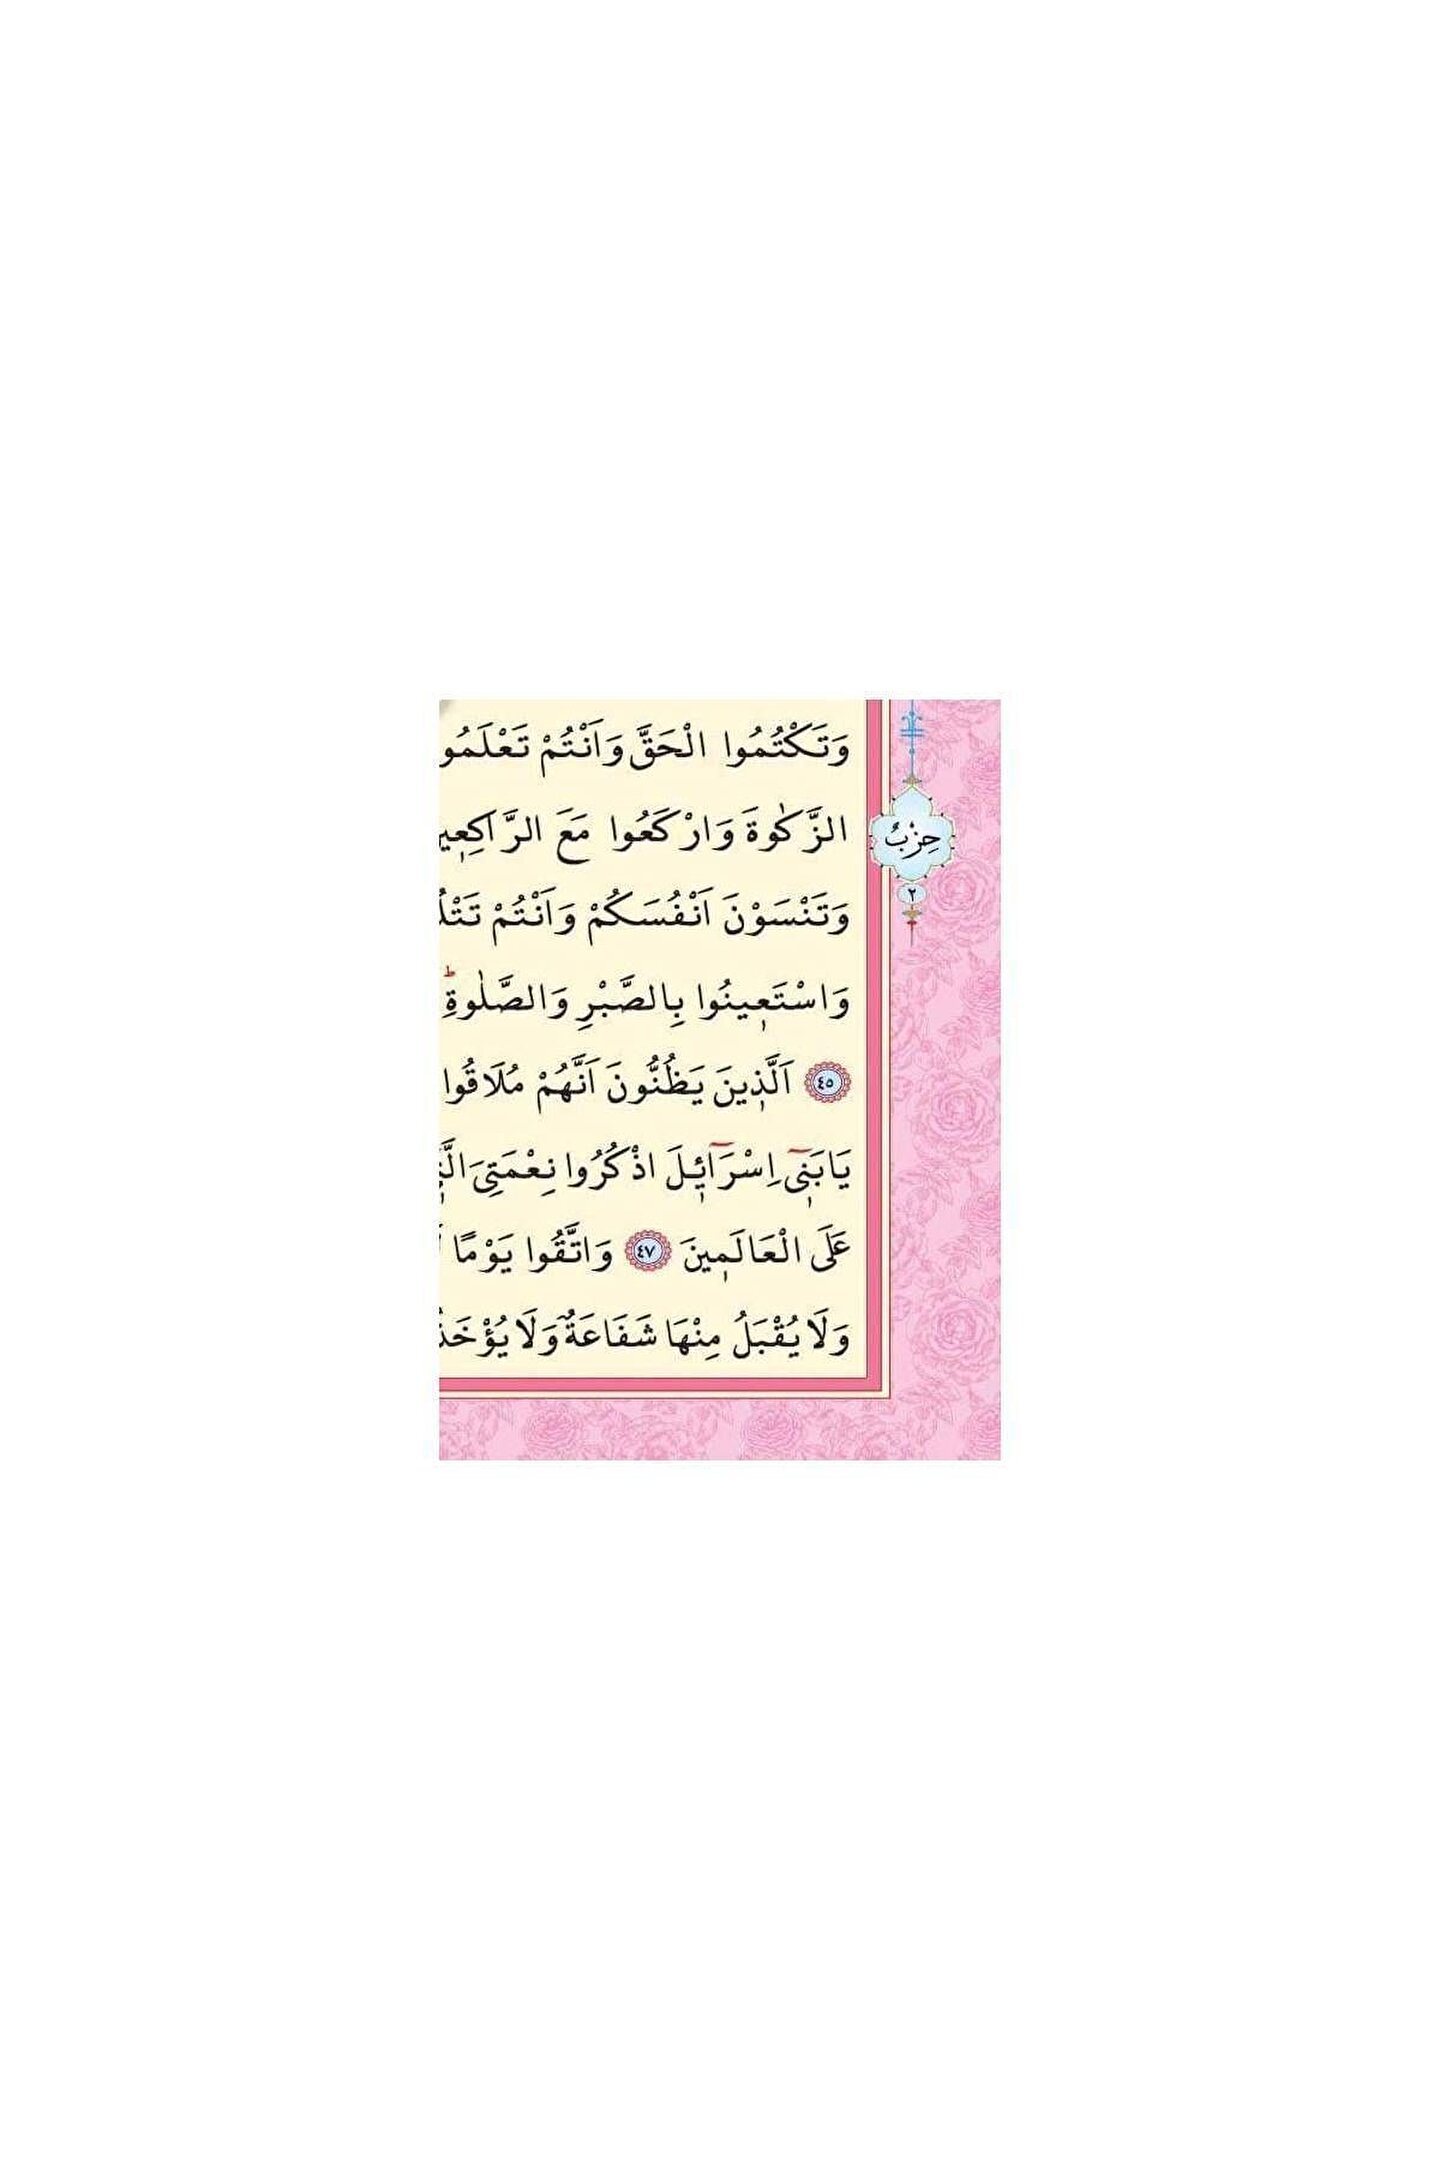 وَتَكْتُمُوا الْحَقَّ وَاَنْتُمْ
الزَّكٰوةَ وَارْكَعُوا مَعَ
حِزْبٌ
٢
وَتَنْسَوْنَ اَنْفُسَكُمْ وَاَنْتُمْ
وَاسْتَعٖينُوا بِالصَّبْرِ وَالصَّلٰوةِؕ
٤٥ اَلَّذٖينَ يَظُنُّونَ اَنَّهُمْ مُلَاقُوا
يَابَنٖٓى اِسْرَٓائٖلَ اذْكُرُوا نِعْمَتِىَ
عَلَى الْعَالَمٖينَ ٤٧ وَاتَّقُوا يَوْمًا
وَلَا يُقْبَلُ مِنْهَا شَفَاعَةٌ وَلَا